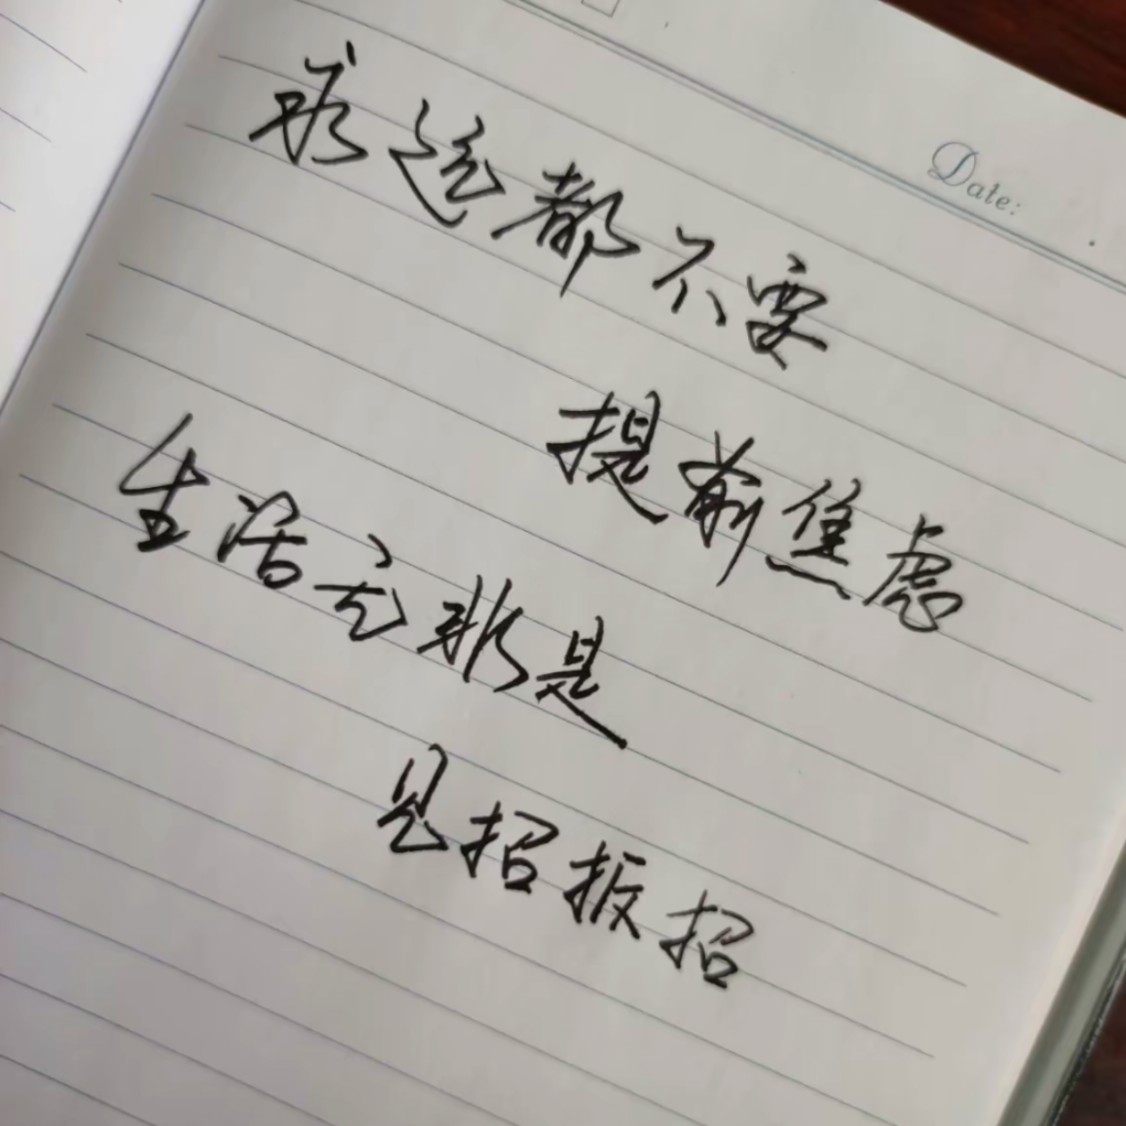 Date:
永远都不要
提前焦虑
生活无非是
见招扳招